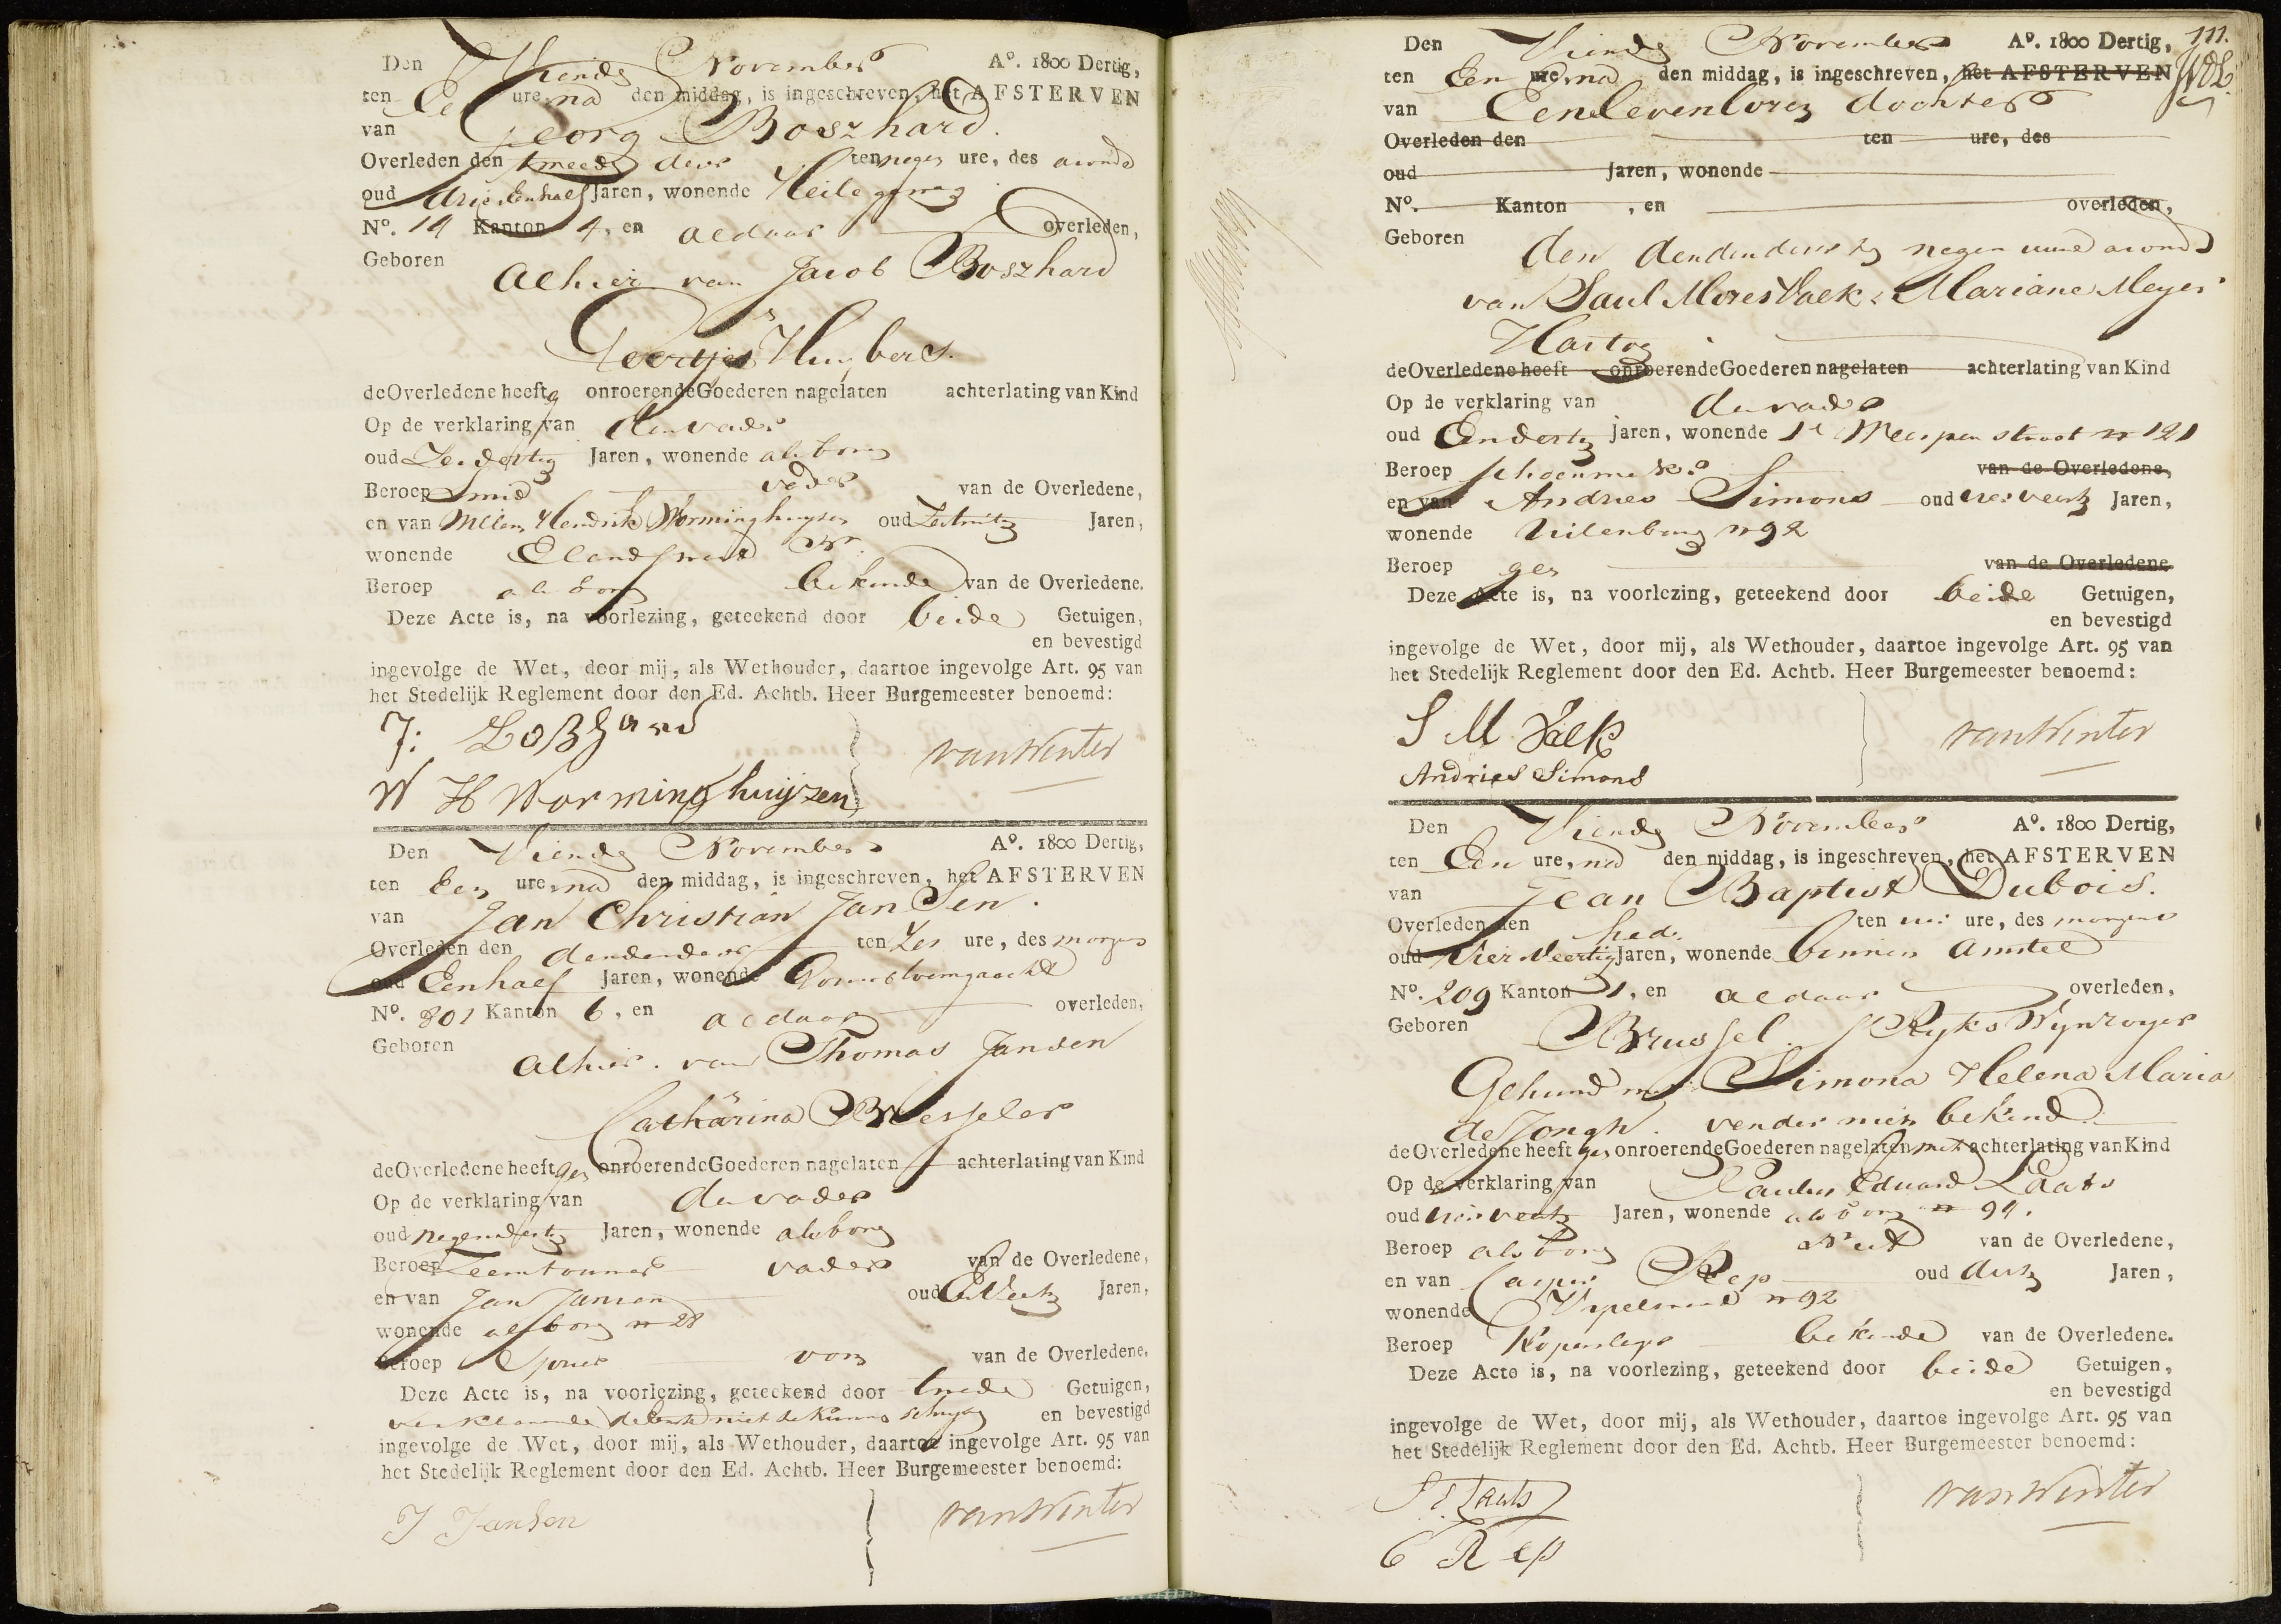 Den Vierde November Aº. 1800 Dertig,
ten Een ure, na den middag, is ingeschreven, het AFSTERVEN
van Georg Boszhard.
Overleden den tweede dezer ten negen ure, des avonds
oud drie Eenhalf Jaren, wonende Heiligeweg
Nº. 14 Kanton 4, en aldaar overleden,
Geboren
Alhier van Jacob Boszhard
&
Geertje Huybers.
de Overledene heeft g onroerende Goederen nagelaten achterlating van Kind
Op de verklaring van den vader
oud Zesdertig Jaren, wonende alsboven
Beroep Smid vader van de Overledene,
en van Willem Hendrik Worminghuysen oud Jaren,
wonende Elandstraat
Beroep alsboven bekende van de Overledene.
Deze Acte is, na voorlezing, geteekend door beide Getuigen,
en bevestigd
ingevolge de Wet, door mij, als Wethouder, daartoe ingevolge Art. 95 van
het Stedelijk Reglement door den Ed. Achtb. Heer Burgemeester benoemd:
J: Boßhard
W H Worminghuijzen
van Winter
Den Vierde November Aº. 1800 Dertig,
ten Een ure, na den middag, is ingeschreven, het AFSTERVEN
van Jan Christian Jansen.
Overleden den derden dezer ten Zes ure, des morgens
oud Eenhalf Jaren, wonende Goudsbloemgracht
Nº. 801 Kanton 6, en aldaar overleden,
Geboren
alhier. van Thomas Jansen
&
Catharina Wesseler
de Overledene heeft geen onroerende Goederen nagelaten achterlating van Kind
Op de verklaring van den vader
oud negendertig Jaren, wonende alsboven
Beroep Leemtouwer vader van de Overledene,
en van Jan Jansen oud Jaren,
wonende alsboven nº 28
Beroep Sponer oom van de Overledene.
Deze Acte is, na voorlezing, geteekend door tweede Getuigen,
verklarende de eerste niet te kunnen schryven en bevestigd
ingevolge de Wet, door mij, als Wethouder, daartoe ingevolge Art. 95 van
het Stedelijk Reglement door den Ed. Achtb. Heer Burgemeester benoemd:
J Jansen
van Winter
111.
Den Vierde November Aº. 1800 Dertig,
ten Een ure, na den middag, is ingeschreven, het AFSTERVEN
van Een levenlooze dochter
Overleden den ten ure, des
oud Jaren, wonende
Nº. Kanton , en overleden,
Geboren
den derden dezer te negen uure avonds
van Saul Mozes Valk & Mariane Meyer
Hartog
de Overledene heeft onroerende Goederen nagelaten achterlating van Kind
Op de verklaring van den vader
oud Eendertig Jaren, wonende 1e Weesperstraat nº 121
Beroep schoenmaker van de Overledene,
en van Andries Simons oud Jaren,
wonende Uilenburg nº 92
Beroep geen van de Overledene
Deze Acte is, na voorlezing, geteekend door beide Getuigen,
en bevestigd
ingevolge de Wet, door mij, als Wethouder, daartoe ingevolge Art. 95 van
het Stedelijk Reglement door den Ed. Achtb. Heer Burgemeester benoemd:
S M Valk
Andries Simons
van Winter
Den Vierde November Aº. 1800 Dertig,
ten Een ure, na den middag, is ingeschreven, het AFSTERVEN
van Jean Baptist Dubois.
Overleden den heden ten ure, des morgens
oud Vier Veertig Jaren, wonende binnen Amstel
Nº. 209 Kanton 1, en aldaar overleden,
Geboren Brussel. Ryks Wynroyer
Gehuwd met Simona Helena Maria
de Jongh. verder niets bekend.
de Overledene heeft geen onroerende Goederen nagelaten met achterlating van Kind
Op de verklaring van Paulus Eduard Laats
oud Jaren, wonende alsboven nº 94.
Beroep alsboven van de Overledene,
en van Casper Rep oud dertig Jaren,
wonende nº 92
Beroep Koperslager bekende van de Overledene.
Deze Acte is, na voorlezing, geteekend door beide Getuigen,
en bevestigd
ingevolge de Wet, door mij, als Wethouder, daartoe ingevolge Art. 95 van
het Stedelijk Reglement door den Ed. Achtb. Heer Burgemeester benoemd:
P. E. Laats
C Rep
van Winter